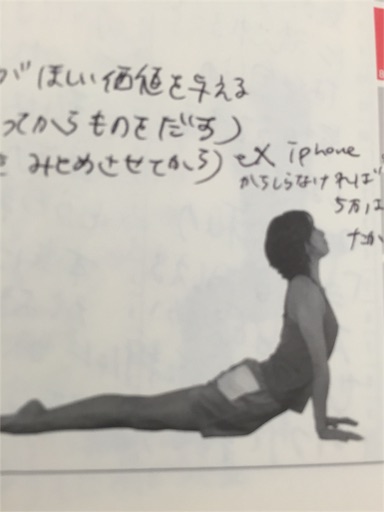 がほしい価値を与える
ってからものをだす)
みとめさせてから) ex iphone
かちしらなければ
5万は
たか